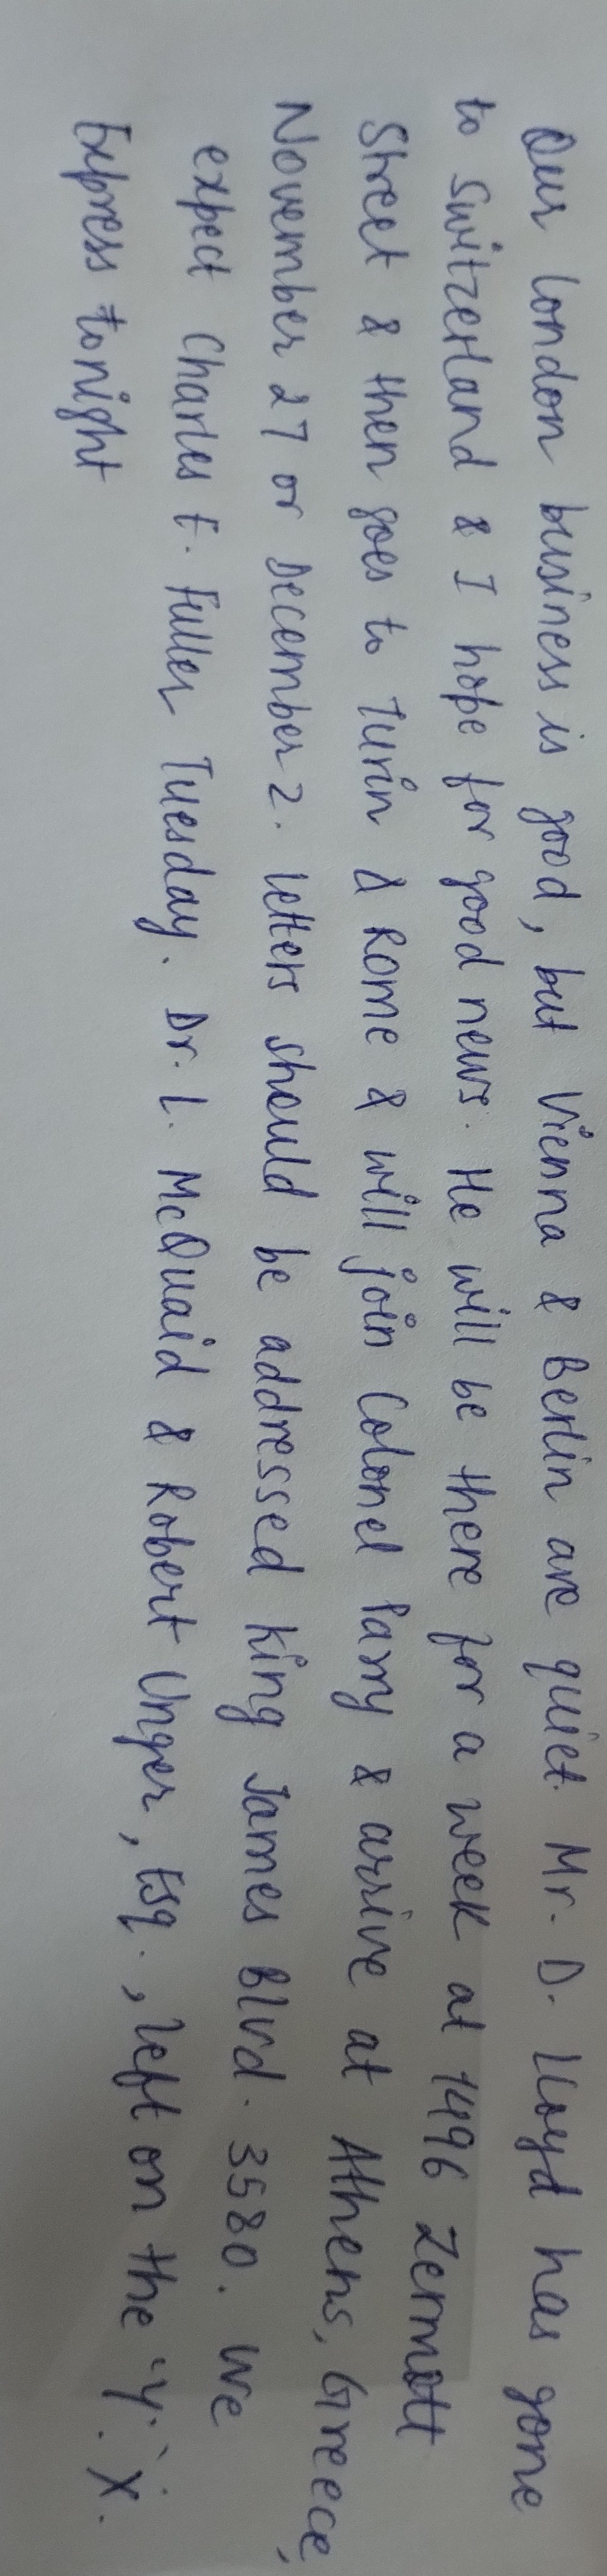 Our London business is good, but Vienna & Berlin are quiet. Mr. D. Lloyd has gone
to Switzerland & I hope for good news. He will be there for a week at 1496 Zermott
Street & then goes to Turin & Rome & will join Colonel Parry & arrive at Athens, Greece,
November 27 or December 2. Letters should be addressed King James Blvd. 3580. We
expect Charles E. Fuller Tuesday. Dr. L. McQuaid & Robert Unger, Esq., left on the 'Y.' X.
Express tonight